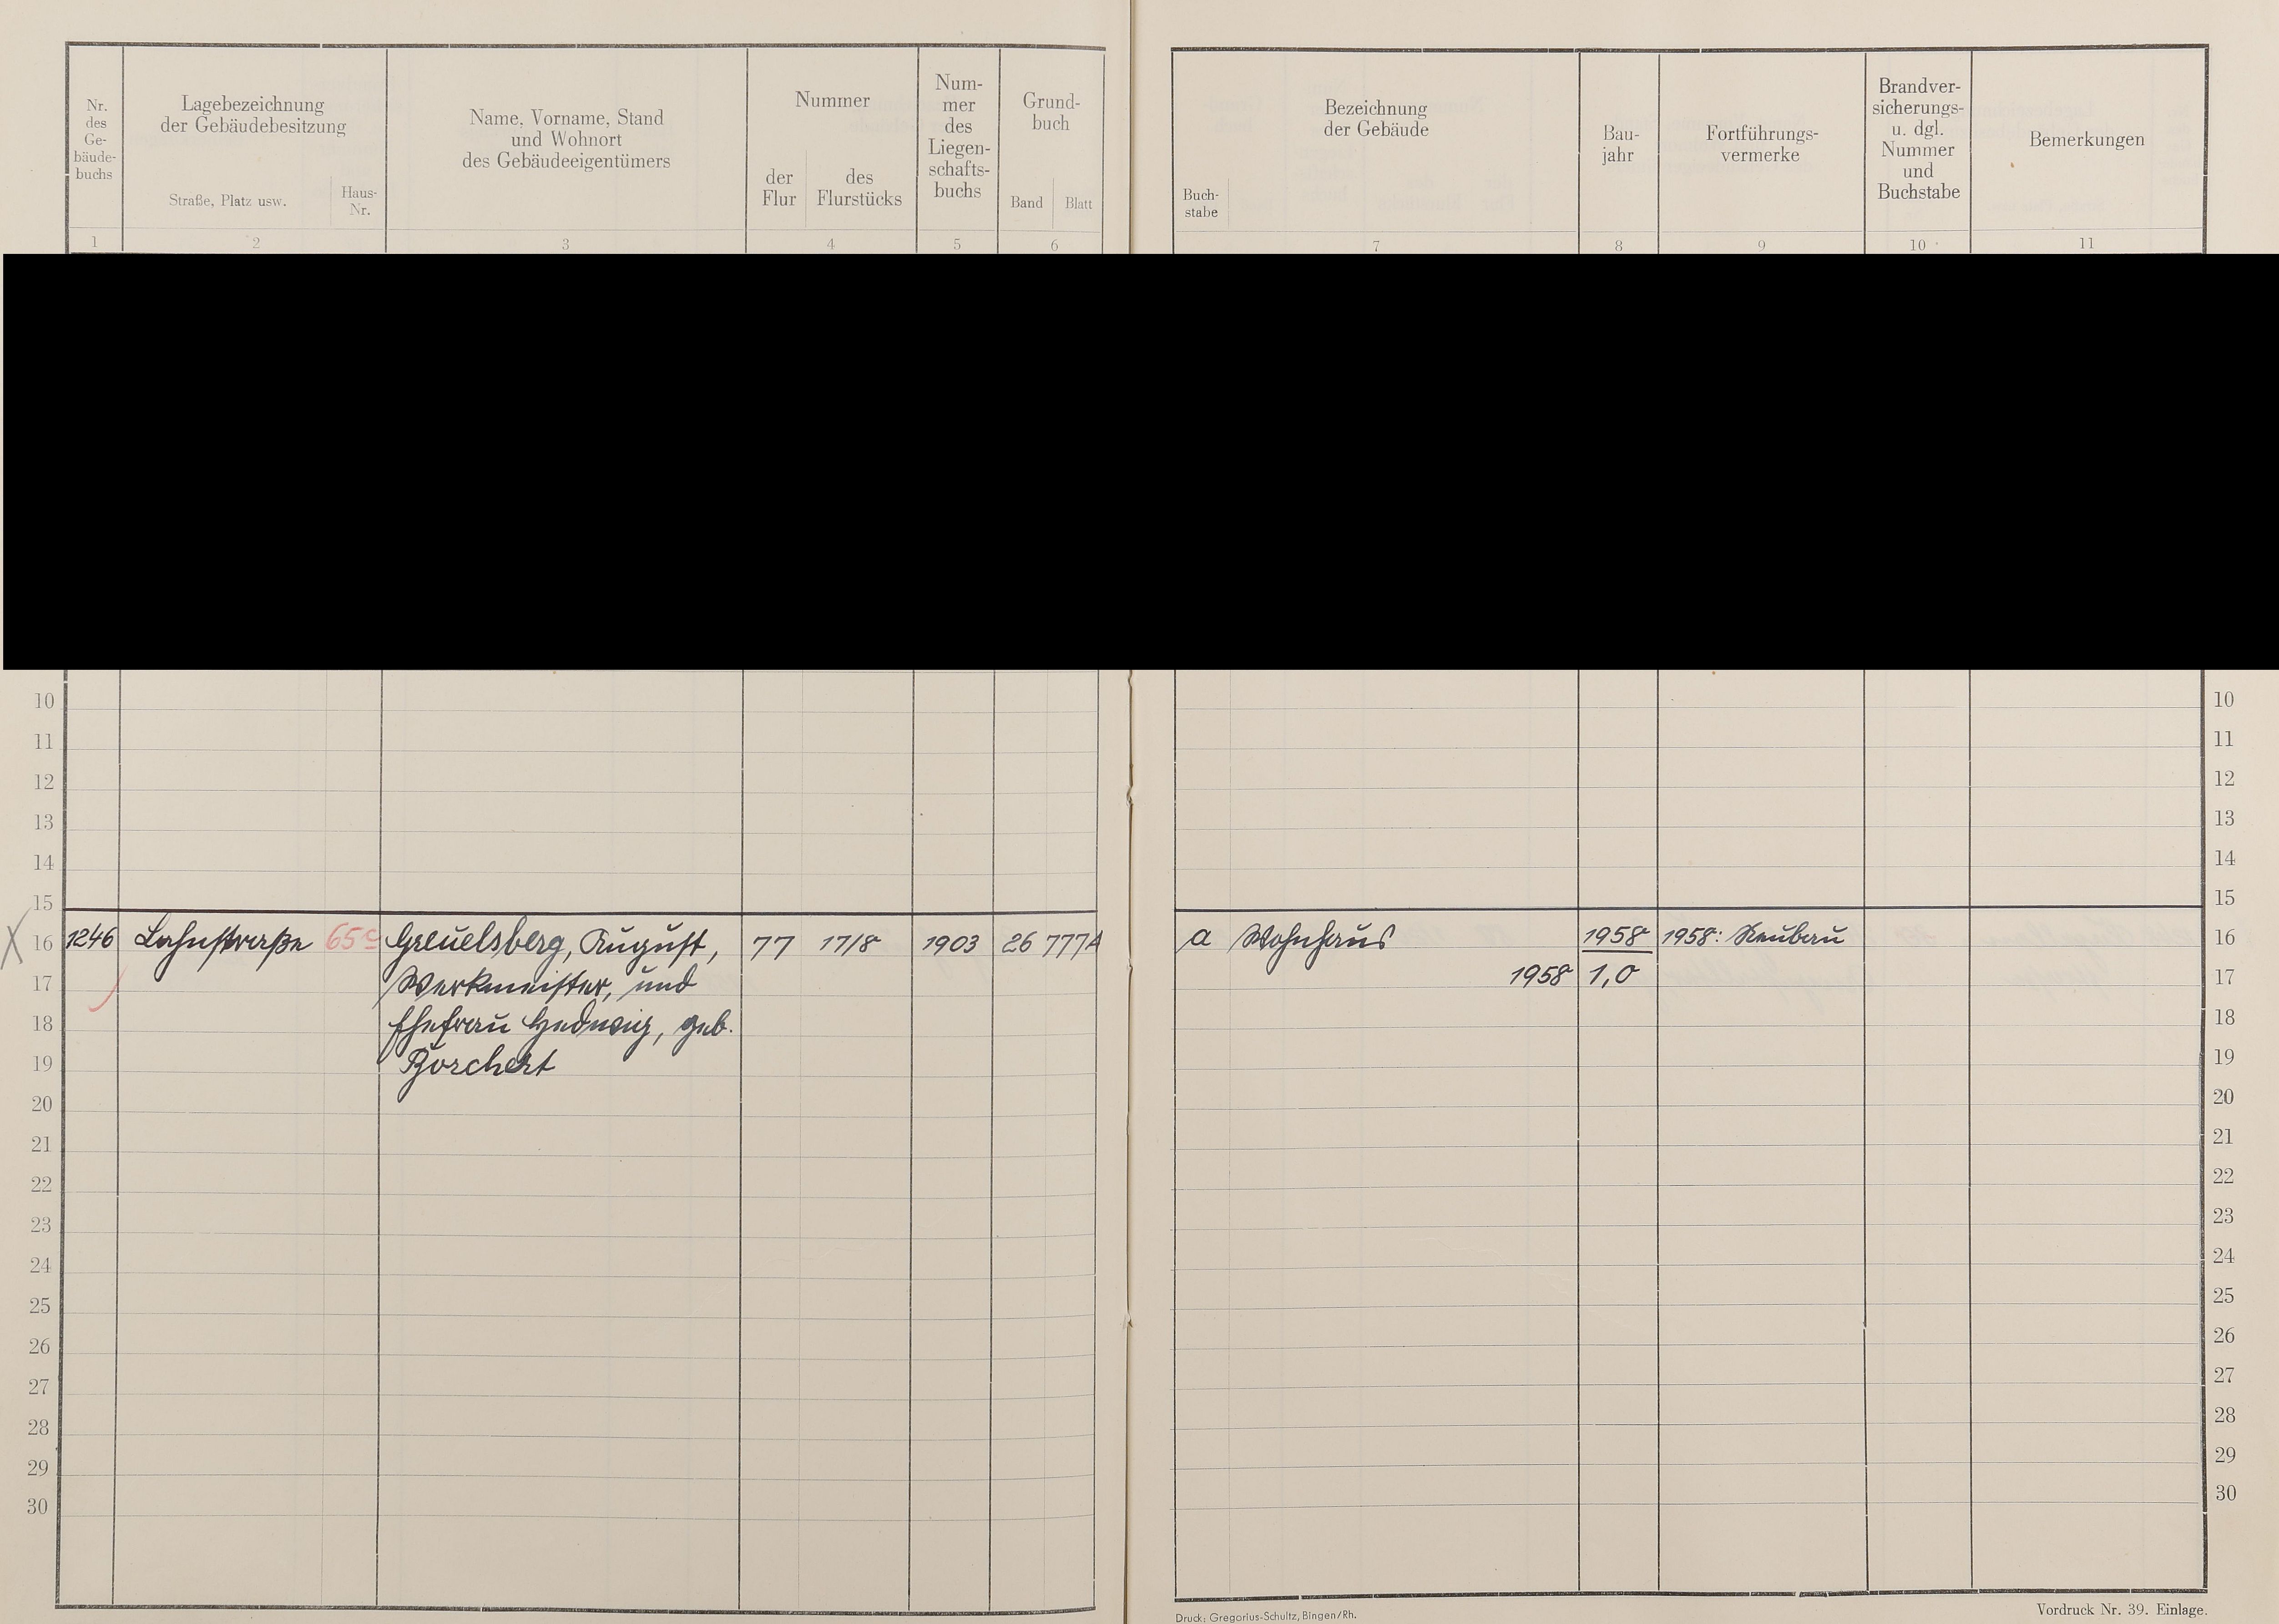 Nr. des Ge-bäude-buchs
Lagebezeichnung
der Gebäudebesitzung
Straße, Platz usw.
Haus-Nr.
Name, Vorname, Stand
und Wohnort
des Gebäudeeigentümers
Nummer
der Flur
des Flurstücks
Num-
mer
des
Liegen-
schafts-
buchs
Grund-
buch
Band
Blatt
1 2 3 4 5 6
Buch-
stabe
Bezeichnung
der Gebäude
Bau-
jahr
Fortführungs-
vermerke
Brandver-
sicherungs-
u. dgl.
Nummer
und
Buchstabe
Bemerkungen
7 8 9 10 11
10 10
11 11
12 12
13 13
14 14
15 15
16 1246 Lahnstraße 65c Greuelsberg, August, 77 17/8 1903 26 777A a Wohnhaus 1958 1958: Neubau 16
17 Werkmeister, und 1958 1,0 17
18 Ehefrau Hedwig, geb. 18
19 Borchert 19
20 20
21 21
22 22
23 23
24 24
25 25
26 26
27 27
28 28
29 29
30 30
Druck: Gregorius-Schultz, Bingen/Rh.
Vordruck Nr. 39. Einlage.